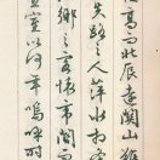 柱高而北辰遠關山難
失路之人萍水相
鄉之客懷帝閽而
宣室以何年嗚呼時